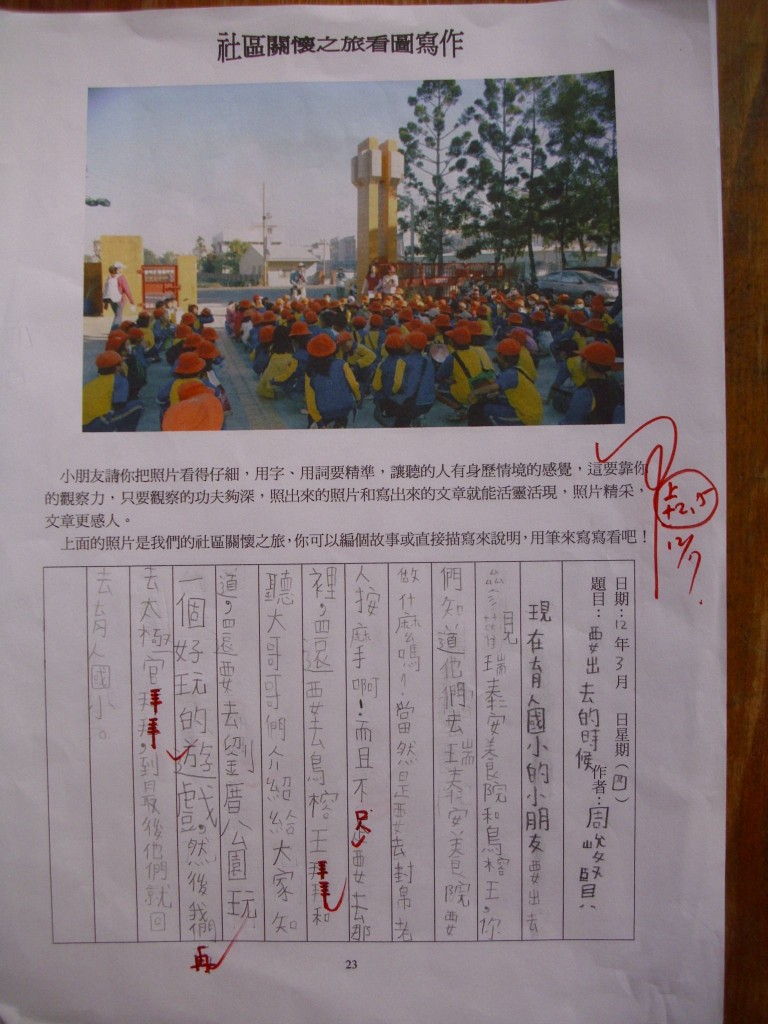 社區關懷之旅看圖寫作
小朋友請你把照片看得仔細，用字、用詞要精準，讓聽的人有身歷情境的感覺，這要靠你
的觀察力，只要觀察的功夫夠深，照出來的照片和寫出來的文章就能活靈活現，照片精采，
文章更感人。
上面的照片是我們的社區關懷之旅，你可以編個故事或直接描寫來說明，用筆來寫寫看吧！
上
+2.5
12/7.
日期：12年3月 日星期（四）
題目：要出去的時候 作者：周
現在育人國小的小朋友要出去
瑞泰安養院和鳥榕王，你
們知道他們去瑞泰安養院要
做什麼嗎？當然是要去封帛老
人按麻手啊！而且不只要去那
裡，還要去鳥榕王拜拜和
聽大哥哥們介紹給大家知
道，還要去劉厝公園玩
一個好玩的遊戲，然後我們再
去太極宮拜拜，到最後他們就回
去育人國小。
23